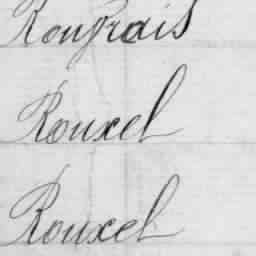 Rougrais
Rouxel
Rouxel